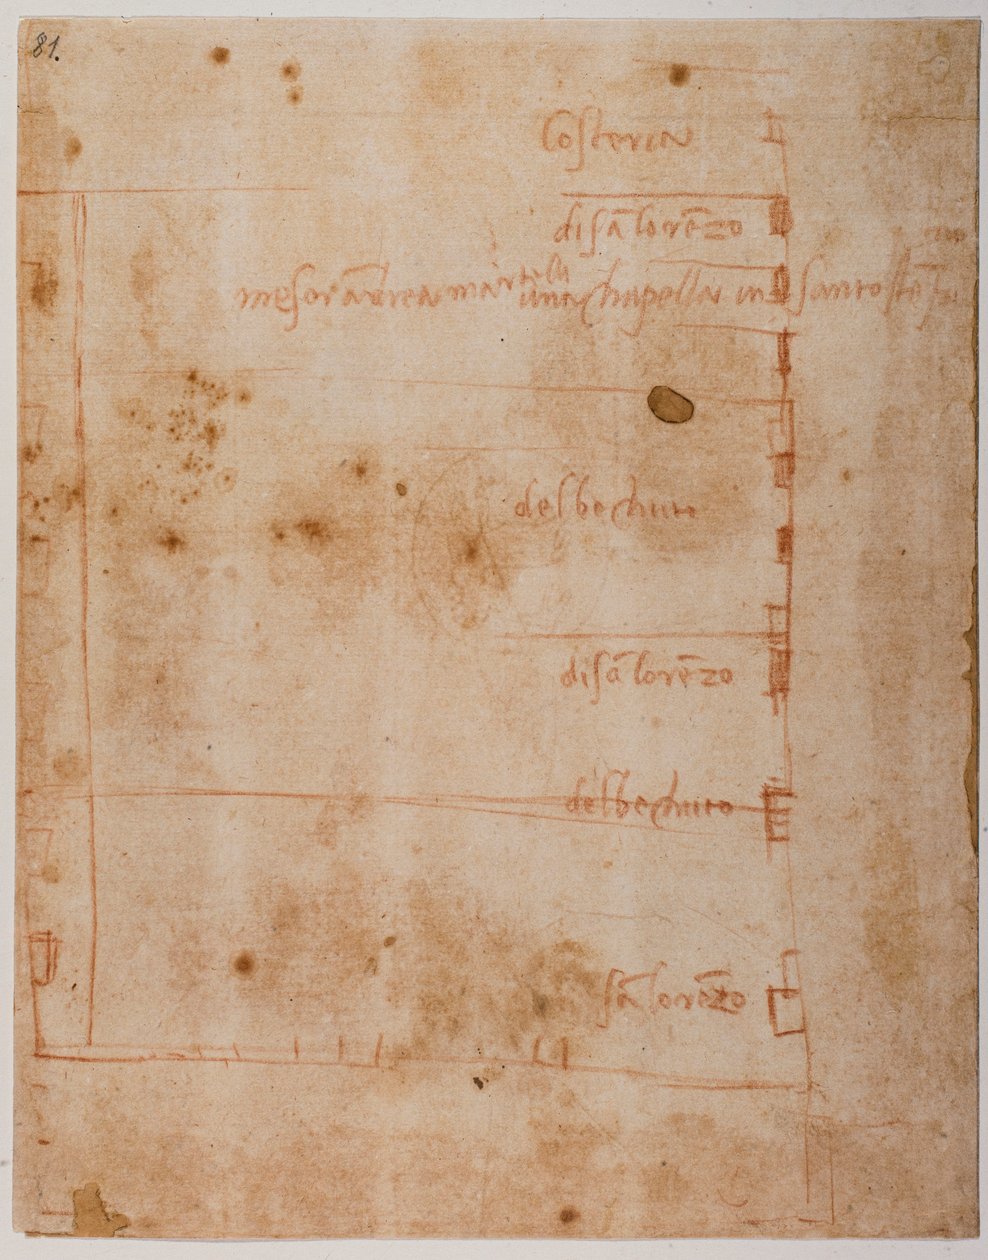 81.
Costeria
di sā lorēzo
meſor ādrea martelli una chapella in santo stē
del bechuto
di sā lorēzo
del bechuto
sā lorēzo